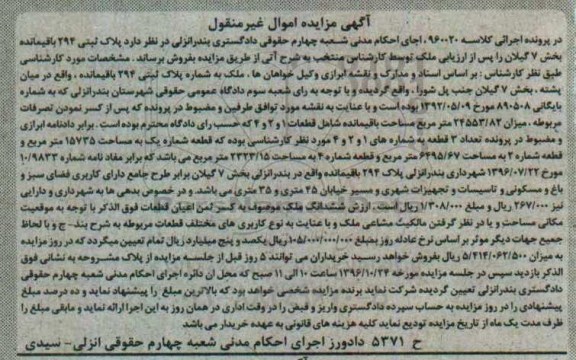 آگهی مزایده اموال غیرمنقول
در پرونده اجرائی کلاسه ۹۶۰۰۲۰ ، اجای احکام مدنی شعبه چهارم حقوقی دادگستری بندرانزلی در نظر دارد پلاک ثبتی ۲۹۴ باقیمانده
بخش ۷ گیلان را پس از ارزیابی ملک توسط کارشناس منتخب به شرح آتی از طریق مزایده بفروش برساند . مشخصات مورد کارشناسی
طبق نظر کارشناس : بر اساس اسناد و مدارک و نقشه ابرازی وکیل خواهان ها . ملک به شماره پلاک ثبتی ۲۹۴ باقیمانده ، واقع در میان
پشته ، بخش ۷ گیلان جنب پل شورا ، واقع گردیده و با توجه به رای شعبه سوم دادگاه عمومی حقوقی شهرستان بندرانزلی که به شماره
بایگانی ۸۹۰۵۰۸ مورخ ۱۳۹۲/۰۵/۰۹ بوده است و با عنایت به نقشه مورد توافق طرفین و مضبوط در پرونده که پس از کسر نمودن تصرفات
مربوطه ، میزان ۲۴۵۵۳/۸۲ متر مربع مساحت باقیمانده شامل قطعات ۱ و ۲ و ۴ که حسب رای دادگاه محترم بوده است . برابر دادنامه ابرازی
و مضبوط در پرونده تعداد ۳ قطعه به شماره های ۱ و ۲ و ۴ مورد نظر کارشناسی بوده که قطعه شماره یک به مساحت ۱۵۷۳۵ متر مربع و
قطعه شماره ۲ به مساحت ۶۴۹۵/۶۷ متر مربع و قطعه شماره ۴ به مساحت ۲۳۲۳/۱۵ متر مربع می باشد که برابر مفاد نامه شماره ۱۰/۹۸۳۳
مورخ ۱۳۹۶/۰۷/۲۲ شهرداری بندرانزلی پلاک ۲۹۴ باقیمانده واقع در بندرانزلی بخش ۷ گیلان برابر طرح جامع دارای کاربری فضای سبز و
باغ و مسکونی و تاسیسات و تجهیزات شهری و مسیر خیابان ۴۵ متری و ۳۵ متری می باشد. و در خصوص بدهی ها به شهرداری و دارایی
نیز ۲۶۷/۰۰۰ ریال و مبلغ ۱/۳۰۸/۰۰۰ ریال است . ارزش ششدانگ ملک موصوف به کسر ثمن اعیان قطعات فوق الذکر با توجه به موقعیت
مکانی مساحت و با در نظر گرفتن مالکیت مشاعی ملک و با عنایت به نوع کاربری های مختلف قطعات مربوطه به شرح بند- ج و با لحاظ
جمیع جهات دیگر موثر بر اساس نرخ عادله روز بمبلغ ۱۰۵/۰۰۰/۰۰۰/۰۰۰ ریال یکصد و پنج میلیارد ریال تمام تعیین میگردد که در روز مزایده
به میزان ۵/۴۱۴/۰۶۲/۵۰۰ ریال بفروش خواهد رسید خریداران می توانند ۵ روز قبل از جلسه مزایده از پلاک مشروحه به نشانی فوق
الذکر بازدید سپس در جلسه مزایده مورخه ۱۳۹۶/۱۰/۲۴ ساعت ۱۰ الی ۱۱ صبح که محل آن دایره اجرای احکام مدنی شعبه چهارم حقوقی
دادگستری بندرانزلی تعیین گردیده شرکت نماید برنده مزایده شخصی خواهد بود که بالاترین مبلغ را پیشنهاد نماید و ده درصد مبلغ
پیشنهادی را در روز مزایده به حساب سپرده دادگستری واریز و قبض را در وقت اداری در همان روز به این اجرا ارائه نماید و مابقی مبلغ را
ظرف مدت یک ماه از تاریخ مزایده تودیع نماید کلیه هزینه های قانونی به عهده خریدار می باشد
ح ۵۳۷۱ دادورز اجرای احکام مدنی شعبه چهارم حقوقی انزلی- سیدی